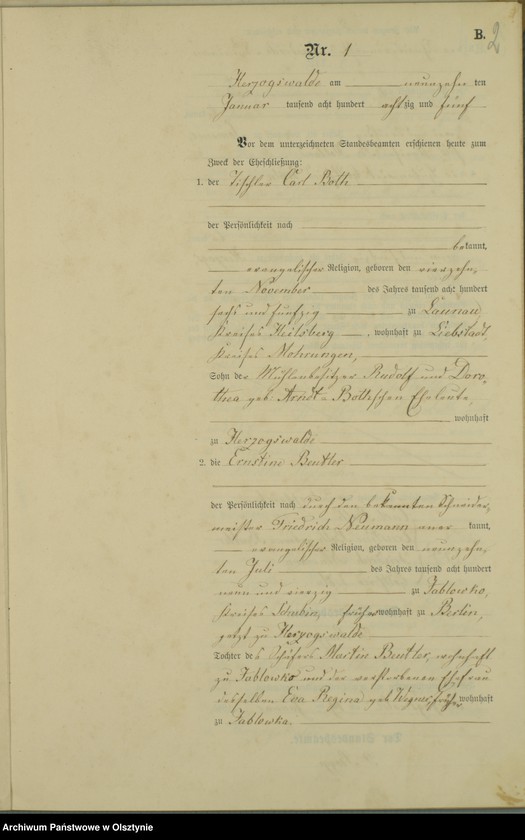 B. 2
Nr. 1
Herzogswalde am neunzehn ten
Januar tausend acht hundert achtzig und fünf
Vor dem unterzeichneten Standesbeamten erschienen heute zum
Zweck der Eheschließung:
1. der Tischler Carl Both
der Persönlichkeit nach
bekannt,
evangelischer Religion, geboren den vierzehn,
ten November des Jahres tausend acht hundert
sechs und fünfzig zu Launau,
Kreises Heilsberg, wohnhaft zu Liebstadt,
Kreises Mohrungen,
Sohn des Mühlenbesitzer Rudolf und Doro,
thea geb: Arndt-Bothschen Eheleute,
wohnhaft
zu Herzogswalde
2. die Ernstine Beutler
der Persönlichkeit nach durch den bekannten Schneider,
meister Friedrich Neumann aner kannt,
evangelischer Religion, geboren den neunzehn,
ten Juli des Jahres tausend acht hundert
neun und vierzig zu Jablowko,
Kreises Schubin, früher wohnhaft zu Berlin,
jetzt zu Herzogswalde
Tochter des Schäfers Martin Beutler, wohnhaft
zu Jablowko und der verstorbenen Ehefrau
desselben Eva Regina geb. früher wohnhaft
zu Jablowka.
Archiwum Państwowe w Olsztynie